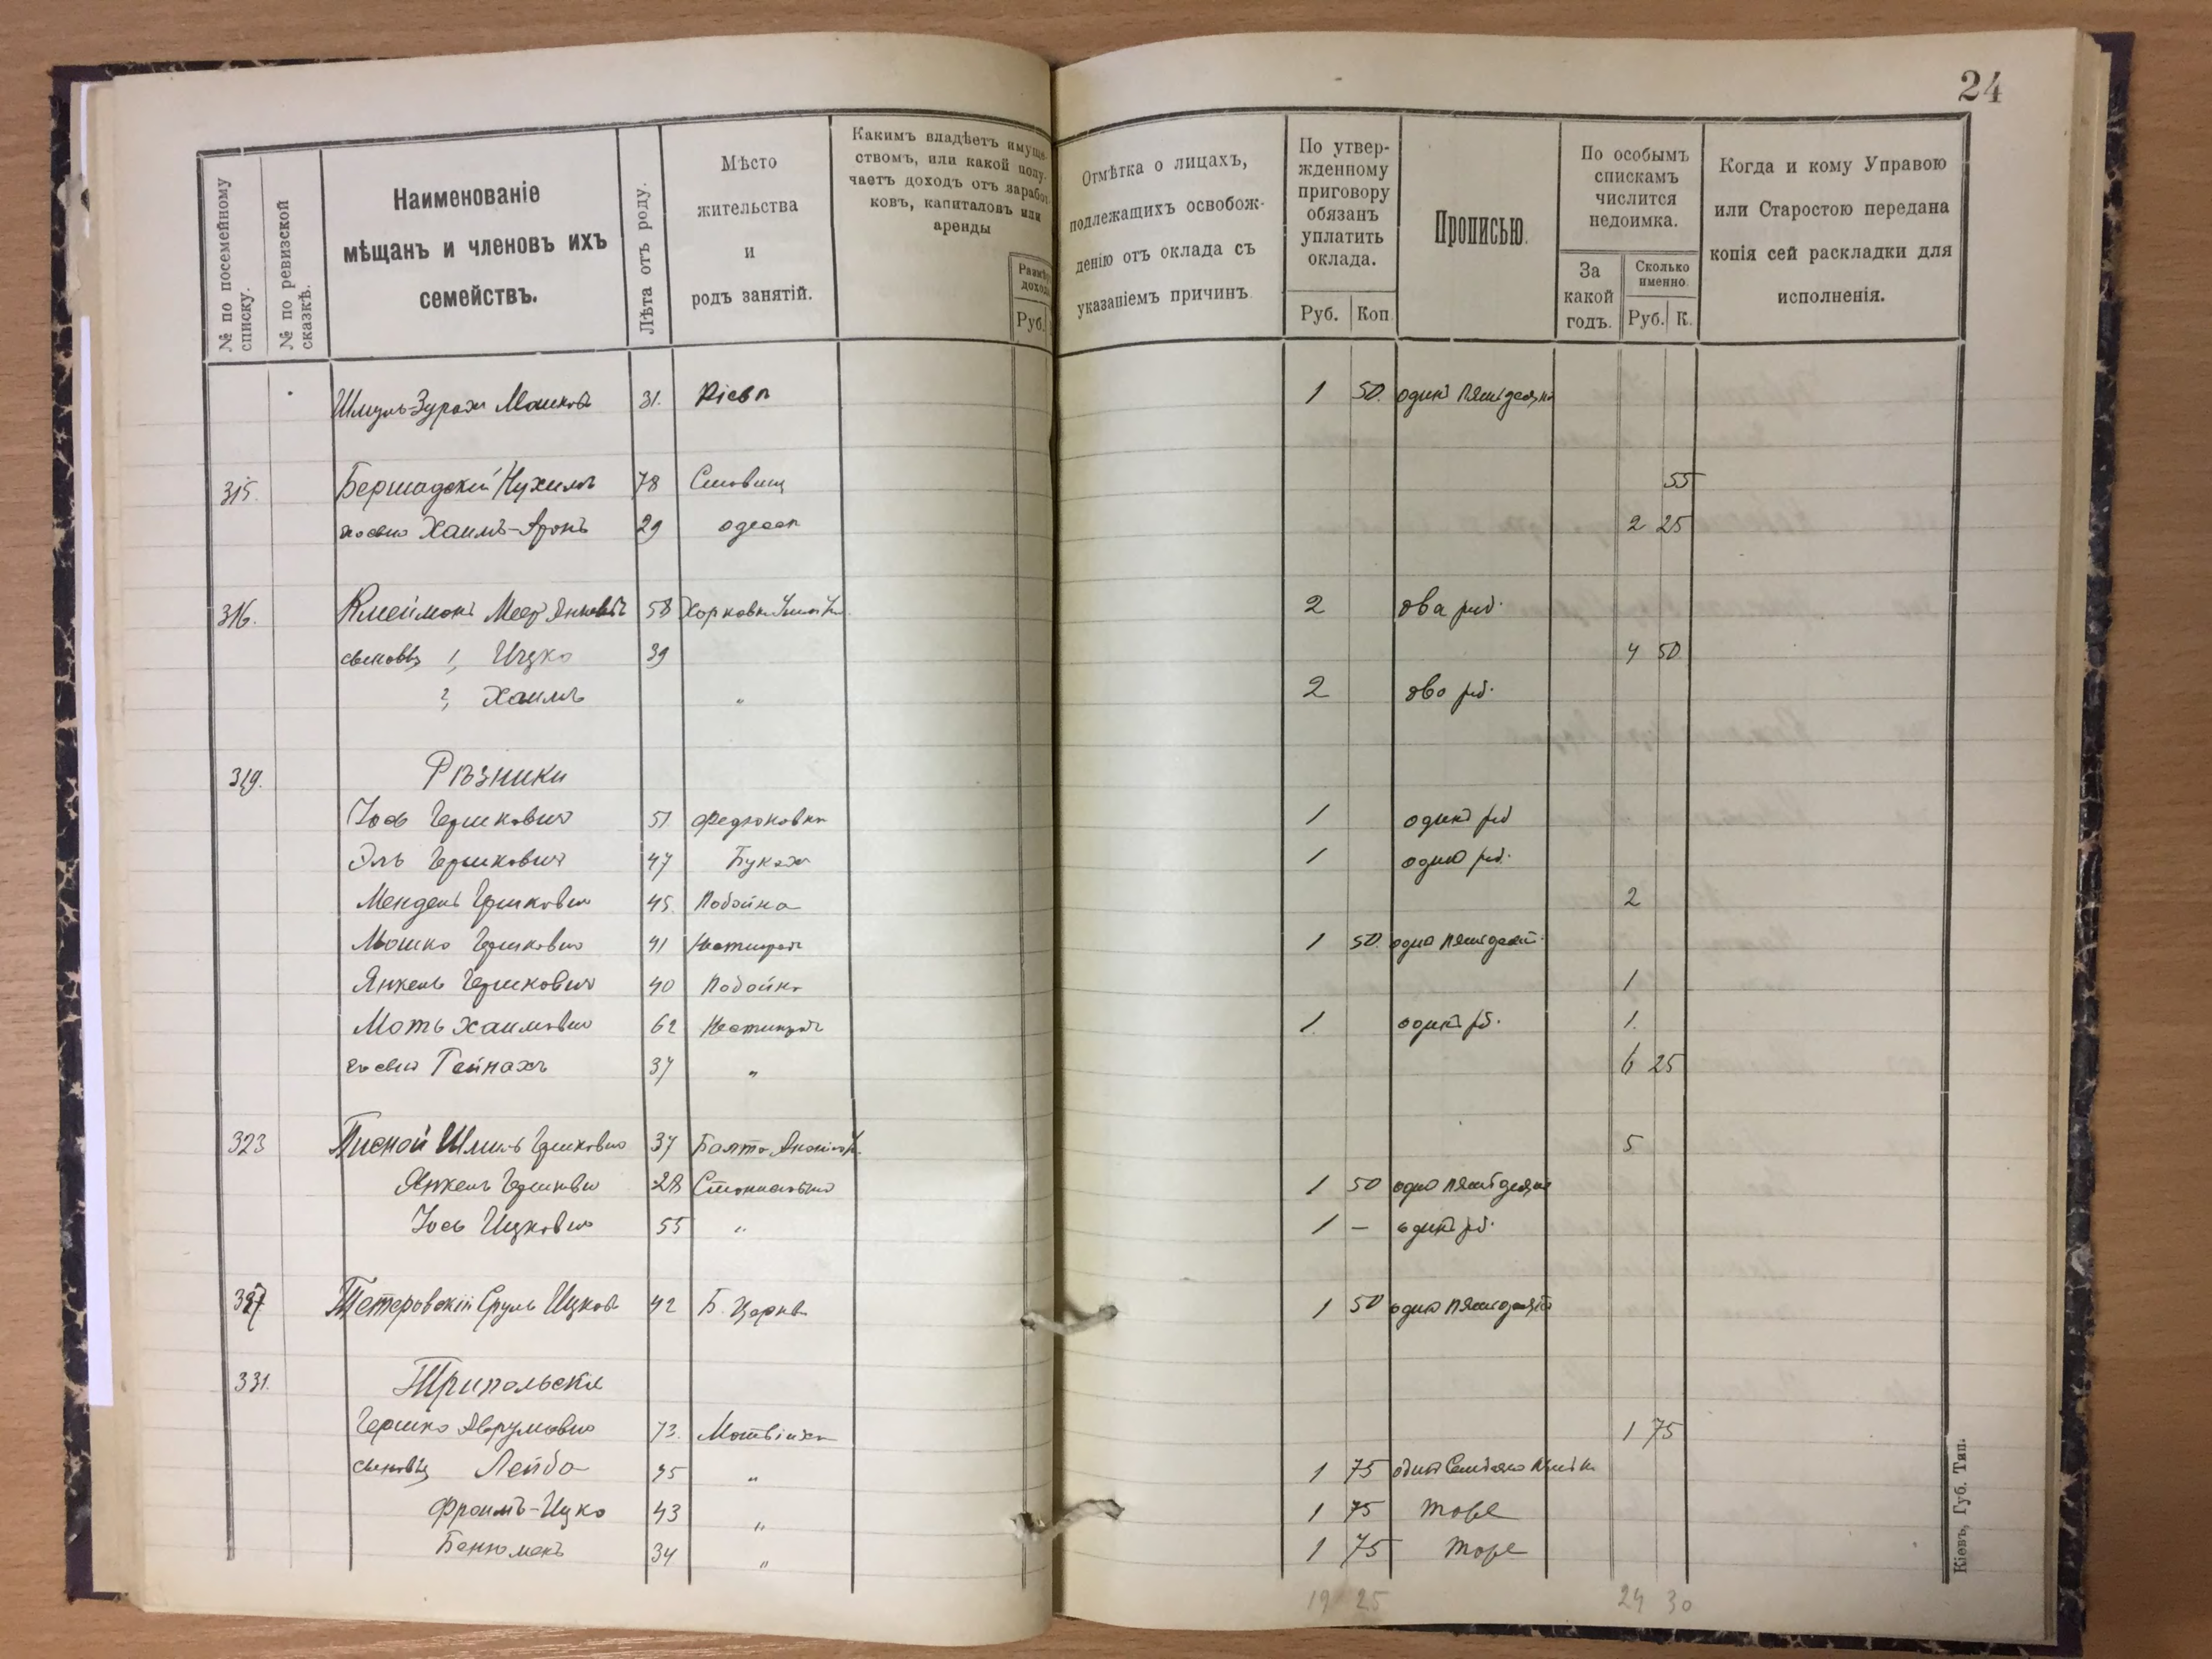 24
№ по посемейному списку.
№ по ревизской сказкѣ.
Наименованіе мѣщанъ и членовъ ихъ семействъ.
Лѣта отъ роду.
Мѣсто жительства и родъ занятій.
Какимъ владѣетъ имуще-
ствомъ, или какой полу-
чаетъ доходъ отъ заработ-
ковъ, капиталовъ или
аренды
Руб.
Отмѣтка о лицахъ,
подлежащихъ освобож-
денію отъ оклада съ
указаніемъ причинъ.
По утвер-
жденному
приговору
обязанъ
уплатить
оклада.
Руб. Коп.
Прописью.
По особымъ
спискамъ
числится
недоимка.
За какой годъ.
Сколько именно.
Руб. К.
Когда и кому Управою
или Старостою передана
копія сей раскладки для
исполненія.
Шмуль-Зурахъ Мошковъ 31. Кіевъ 1 50. одинъ пятьдесять
315. Бершадскій Нухимъ 78 55
его сынъ Хаимъ-Аронъ 29 одесса 2 25
316. Клейманъ Меер Янкевъ 58 2 два руб.
сыновья 1, Ицко 39 4 50
2, Хаимъ " 2 два руб.
319. Рѣзники
Іось Гершковичъ 51 Федюковка 1 одинъ руб
Эль Гершковичъ 47 Буках 1 одинъ руб.
Мендель Гершковичъ 45. Побойна 2
Мошко Гершковичъ 41 1 50. одинъ пятьдесят.
Янкель Гершковичъ 40 Побойна 1
Моть Хаимовичъ 62 1. одинъ руб. 1.
его сынъ Гейнахъ 37 " 6 25
323 Писной Шмиль Гершковичъ 37 Балта 5
Янкель Гершковичъ 28 1 50 одинъ пятьдесять
Іось Ицковичъ 55 " 1 — одинъ руб.
327 Тетеровскій Сруль Ицковъ 42 Б. Церковь 1 50 одинъ пятьдесятъ
331. Трипольскіе
Гершко Аврумовичъ 73. Мотвіиха 1 75
сыновья Лейба 45 " 1 75 одинъ семьдесятъ пять к.
Фроимъ-Ицко 43 " 1 75 тоже
Бенюменъ 34 " 1 75 тоже
19 25 24 30
Кіевъ, Губ. Тип.